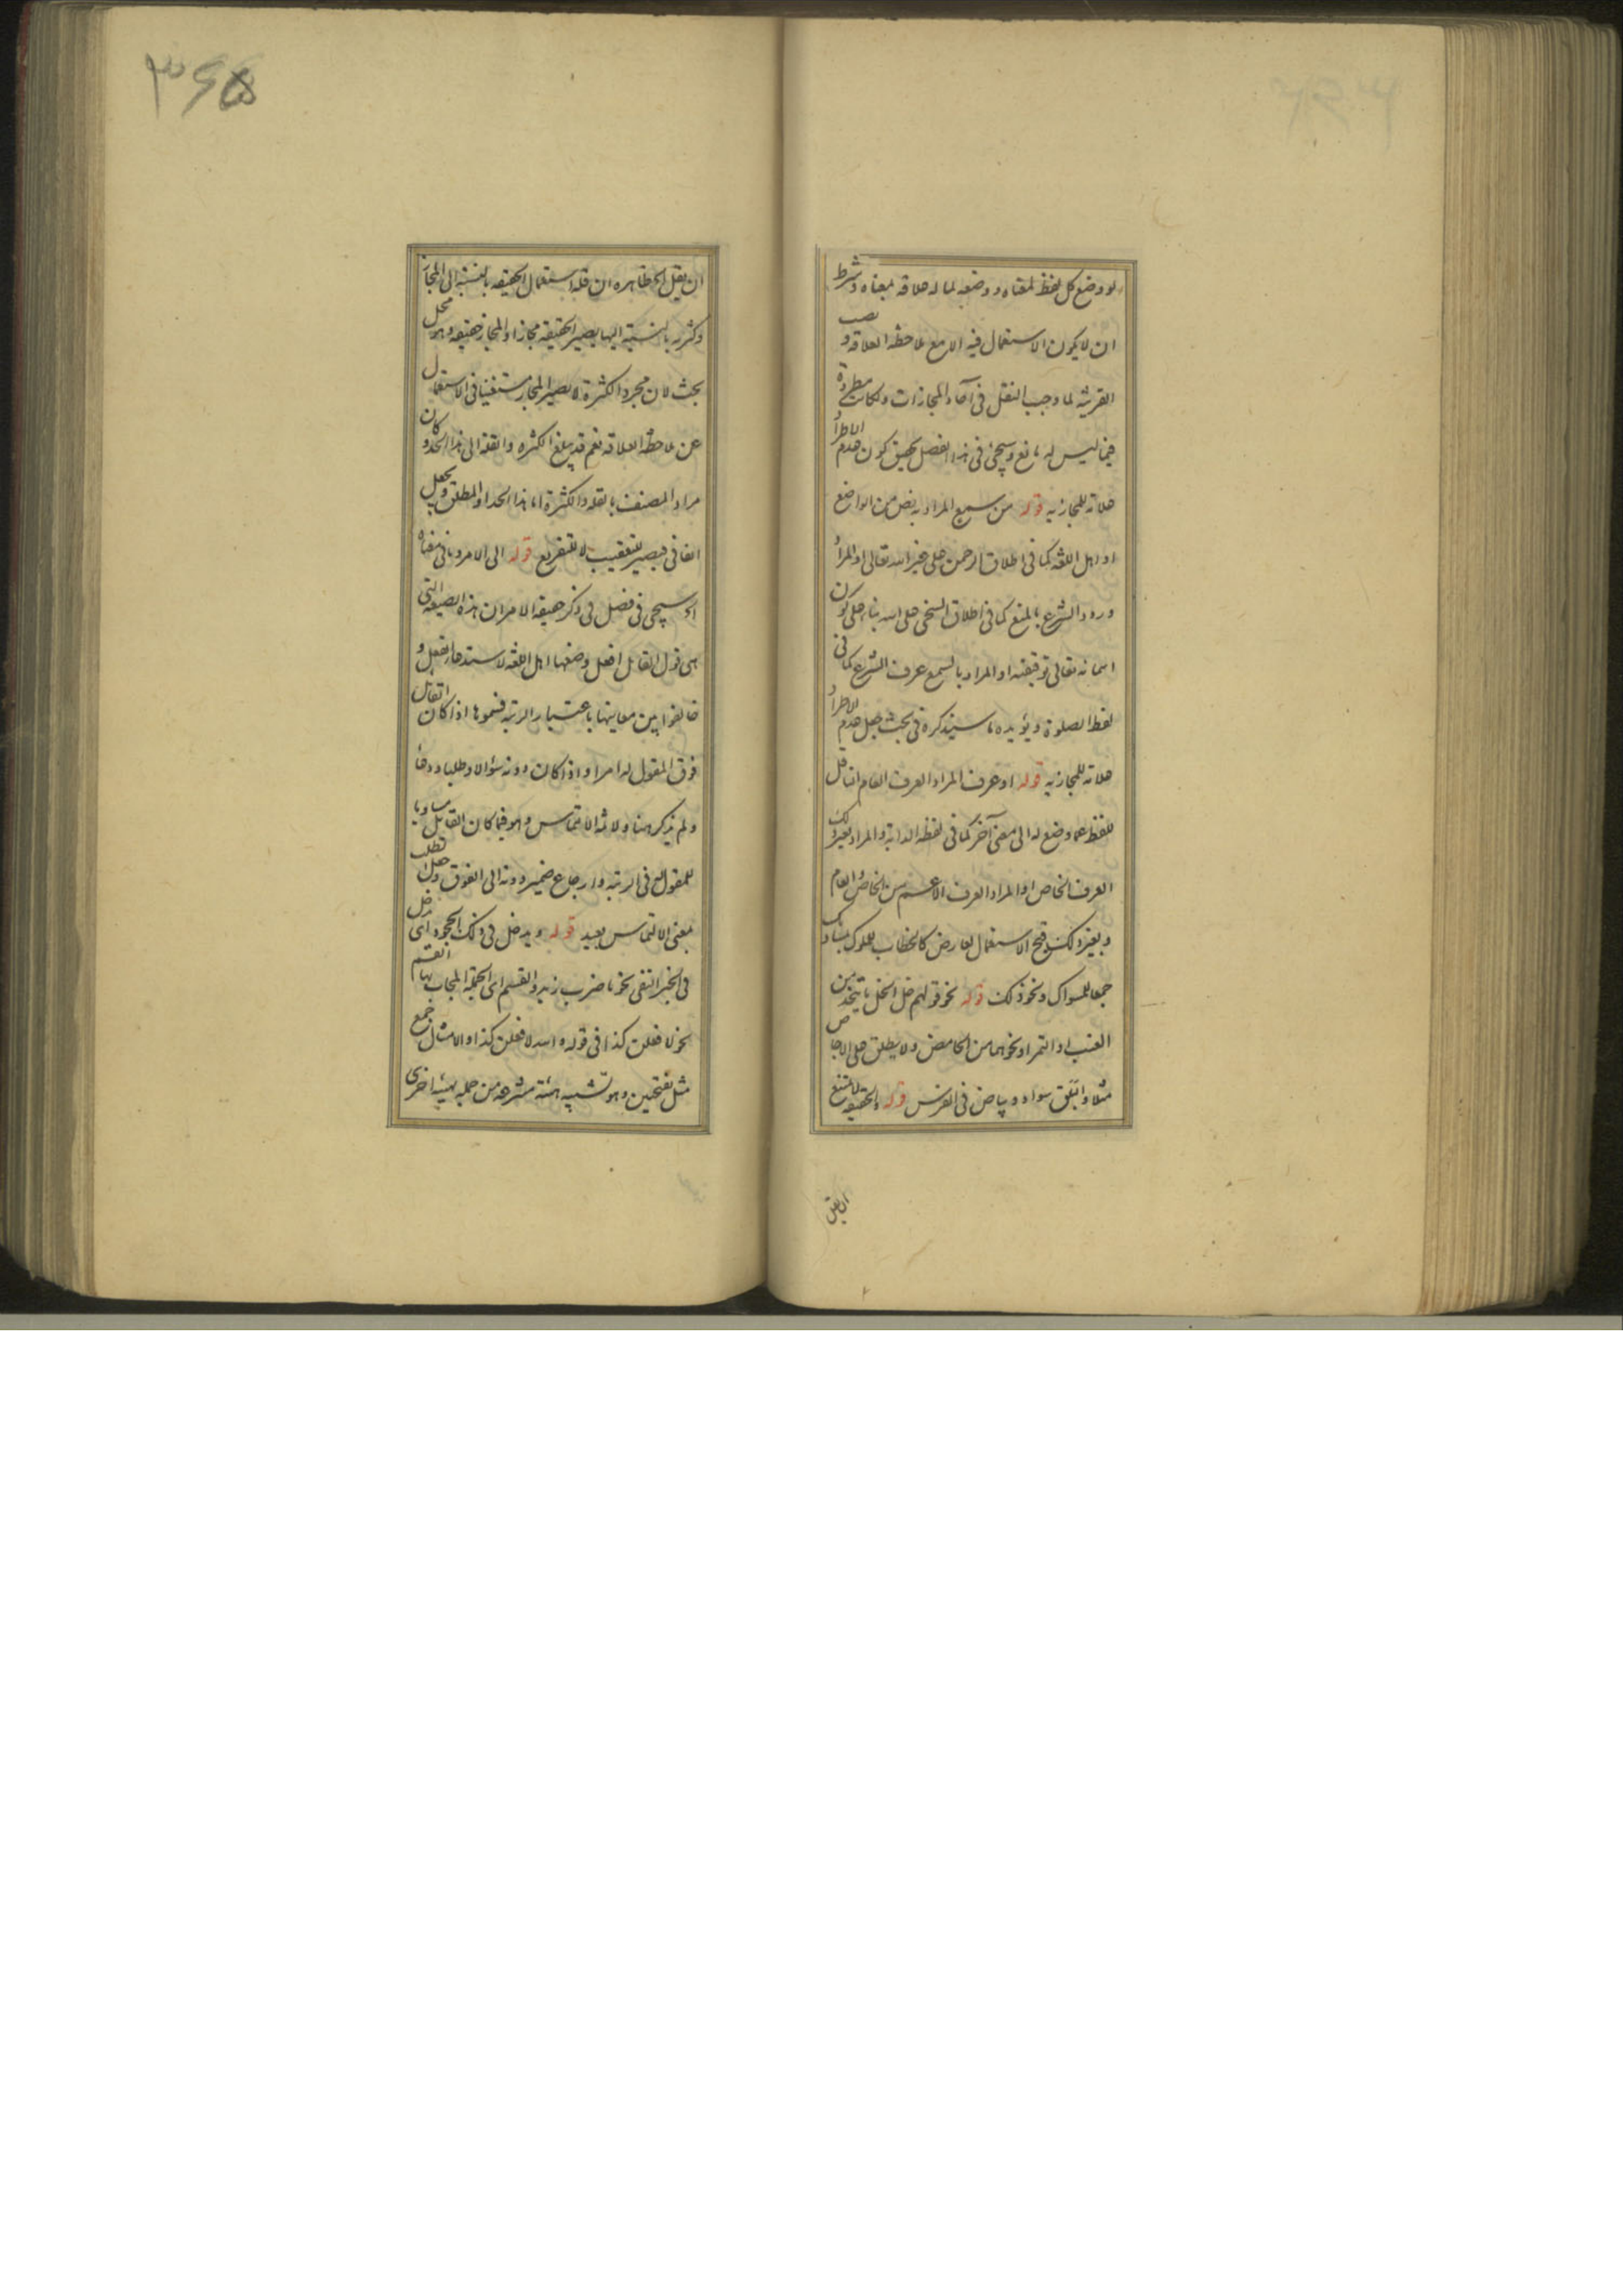 لو وضع كل لفظ لمعناه و وضعه لما له علاقة بمعناه و شرط
ان لا يكون الاستعمال فيه الا مع ملاحظة العلاقة و نصب
القرينة لما وجب النقل فى آحاد المجازات ولكانت مطردة
فيما ليس له مانع وسيجئ فى هذا الفصل تحقيق كون عدم الاطراد
علامة للمجازية قوله من سمع المراد به نص من الواضع
او اهل اللغة كما فى اطلاق الرحمن على غير الله تعالى او المراد
ورود الشرع بالمنع كما فى اطلاق السخى على الله بناء على كون
اسمائه تعالى توقيفية او المراد بالسمع عرف الشرع كما فى
لفظ الصلوة ويؤيده ما سيذكره فى بحث جعل عدم الاطراد
علامة للمجازية قوله او عرف المراد العرف العام الناقل
للفظ عما وضع له الى معنى آخر كما فى لفظة الدابة والمراد بغير ذلك
العرف الخاص او المراد العرف الاعم من الخاص والعام
وبغير ذلك قبح الاستعمال لعارض كالخطاب للملوك بمساويك
جمعا للمسواك ونحو ذلك قوله نحو قولهم خل الخل ما يتخذ من
العنب او التمر او نحوهما من الحامض ولا يطلق على الاجاص
مثلا وابلق سواد و بياض فى الفرس قوله والحقيقة لا تمتنع
ان يقل
٣٦٥
ان يقل الخ ظاهره ان قلة استعمال الحقيقة بالنسبة الى المجاز
وكثرته بالنسبة اليها يصير الحقيقة مجازا والمجاز حقيقة وهو محل
بحث لان مجرد الكثرة لا يصير المجاز مستغنيا فى الاستعمال
عن ملاحظة العلاقة نعم قد يبلغ الكثرة والقلة الى هذا الحد و كان
مراد المصنف بالقلة والكثرة اما هذا الحد او المطلق و يجعل
الفا فى فيصير للتعقيب لا للتفريع قوله الى الامر وما فى معناه
اه سيجى فى فصل فى ذكر حقيقة الامر ان هذه الصيغة التى
هى قول القائل افعل وضعها اهل اللغة لاستدعاء الفعل و
خالفوا بين معانيها باعتبار الرتبة فسموها اذا كان القائل
فوق المقول له امرا و اذا كان دونه سؤالا و طلبا و دعاء
ولم يذكر هنا ولا ثمة الالتماس وهو فيما كان القائل مساويا
للمقول له فى الرتبة وارجاع ضمير دونه الى الفوق وجعل الطلب
بمعنى الالتماس بعيد قوله ويدخل فى ذلك الجحود اى دخل
فى الخبر النفى نحو ما ضرب زيد والقسم اى الجملة المجاب بها القسم
نحو لافعلن كذا فى قوله والله لافعلن كذا والامثال جمع
مثل بفتحتين وهو تشبيه هيئة منتزعة من جملة بهيئة اخرى